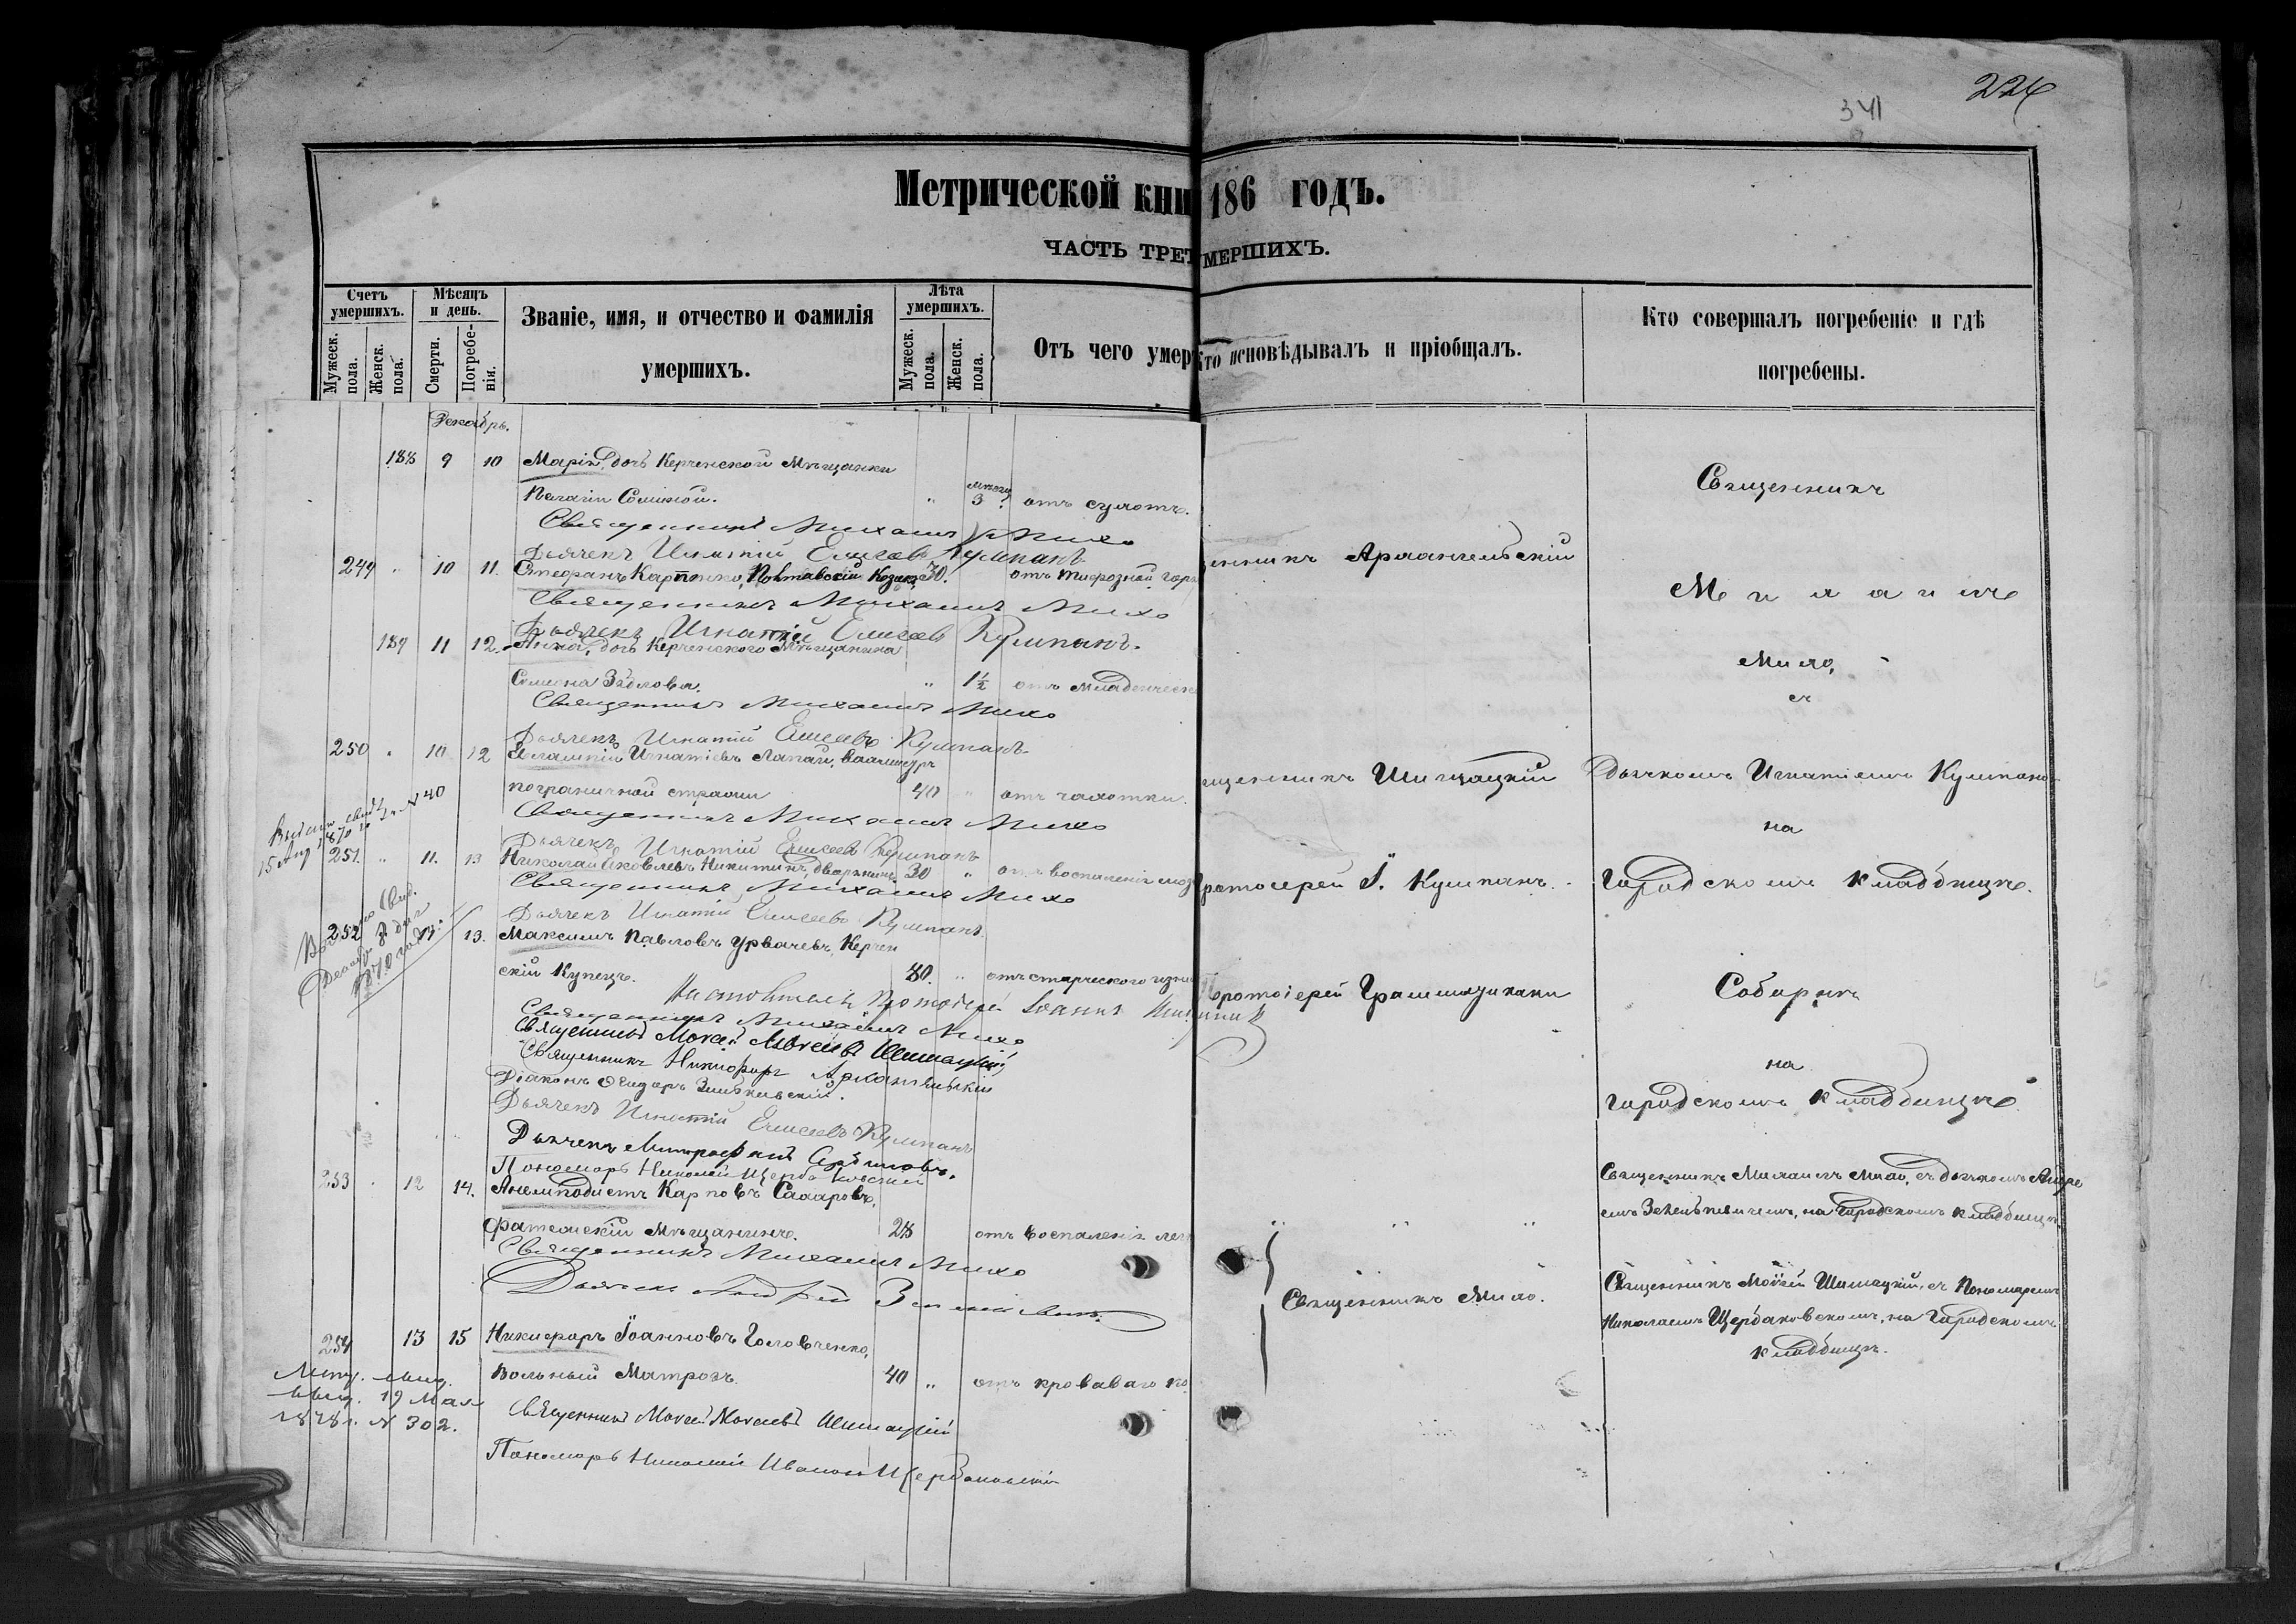 224
341
Метрической кни 186 годъ.
ЧАСТЬ ТРЕТ МЕРШИХЪ.
Счетъ умершихъ.
Мужеск. пола.
Женск. пола.
Мѣсяцъ и день.
Смерти.
Погребенія.
Званіе, имя, и отчество и фамилія
умершихъ.
Лѣта умершихъ.
Мужеск. пола.
Женск. пола.
Отъ чего умер
Кто исповѣдывалъ и пріобщалъ.
Кто совершалъ погребеніе и гдѣ
погребены.
Декабрь.
188 9 10 Марія, дочь Керченской Мѣщанки
Пелагіи 3 отъ сухотъ.
Священникъ Михаилъ Михо
Дьячекъ Игнатій Елисеевъ Кумпанъ
249 " 10 11. Стефанъ Карпенко, Полтавскій Козакъ, 30. отъ тифозной гор
Священникъ Михаилъ Михо
Дьячекъ Игнатій Елисеевъ Кумпанъ.
189 11 12. Анна, дочь Керченскаго Мѣщанина
Семена " 1½ отъ младенческ
Священникъ Михаилъ Михо
Дьячекъ Игнатій Елисеевъ Кумпанъ.
250 " 10 12 Евлампій Игнатіевъ Лапай, вахмистръ
пограничной стражи 40 " отъ чахотки.
Священникъ Михаилъ Михо
Дьячекъ Игнатій Елисеевъ Кумпанъ
15 Aug 1870 № 40
251. " 11. 13 Николай Яковлевъ Никитинъ, дворянинъ 30 " отъ воспаленія моз
Священникъ Михаилъ Михо
Дьячекъ Игнатій Елисеевъ Кумпанъ.
252 11 13. Максимъ Павловъ Урвачевъ, Керчен
скій Купецъ. 80. " отъ старческаго изн
Настоятель Протоіерей Іоаннъ
Священникъ Михаилъ Михо
Священникъ Моисей Шишацкій
Священникъ Никифоръ Архангельскій
Діаконъ
Дьячекъ Игнатій Елисеевъ Кумпанъ
Дьячекъ Митрофанъ
Пономарь Николай Щербаковскій
253 " 12 14. Анемподистъ Карповъ Сахаровъ,
Фатежскій Мѣщанинъ. 28 отъ воспаленія лег
Священникъ Михаилъ Михо
Дьячекъ Андрей
254 13 15 Никифоръ Іоанновъ Головченко,
Вольный Матрозъ. 40 " отъ кроваваго по
Метр. свид.
выд. 19 Мая
1878 г. № 302.
Священникъ Моисей Шишацкій
Пономарь Николай Ивановъ Щербаковскій
енникъ Архангельскій
щенникъ Шишацкій
ротоіерей І. Кумпанъ.
Протоіерей Граммадикаки
" " "
Священникъ Михо.
Священникъ
Михаилъ
Михо,
съ
Дьячкомъ Игнатіемъ Кумпано
на
Городскомъ кладбищѣ.
Соборнѣ
на
городскомъ кладбищѣ
Священникъ Михаилъ Михо, съ дьячкомъ Андре
емъ на Городскомъ кладбищѣ
Священникъ Моѵсей Шишацкій, съ Пономаремъ
Николаемъ Щербаковскимъ, на Городскомъ
кладбищѣ.